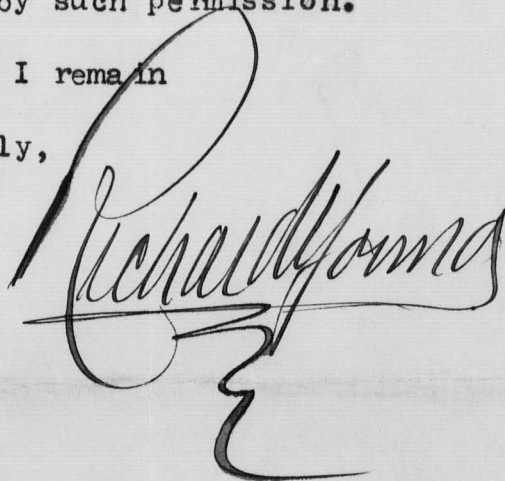 by such permission.
I remain
ly,
Richard Young